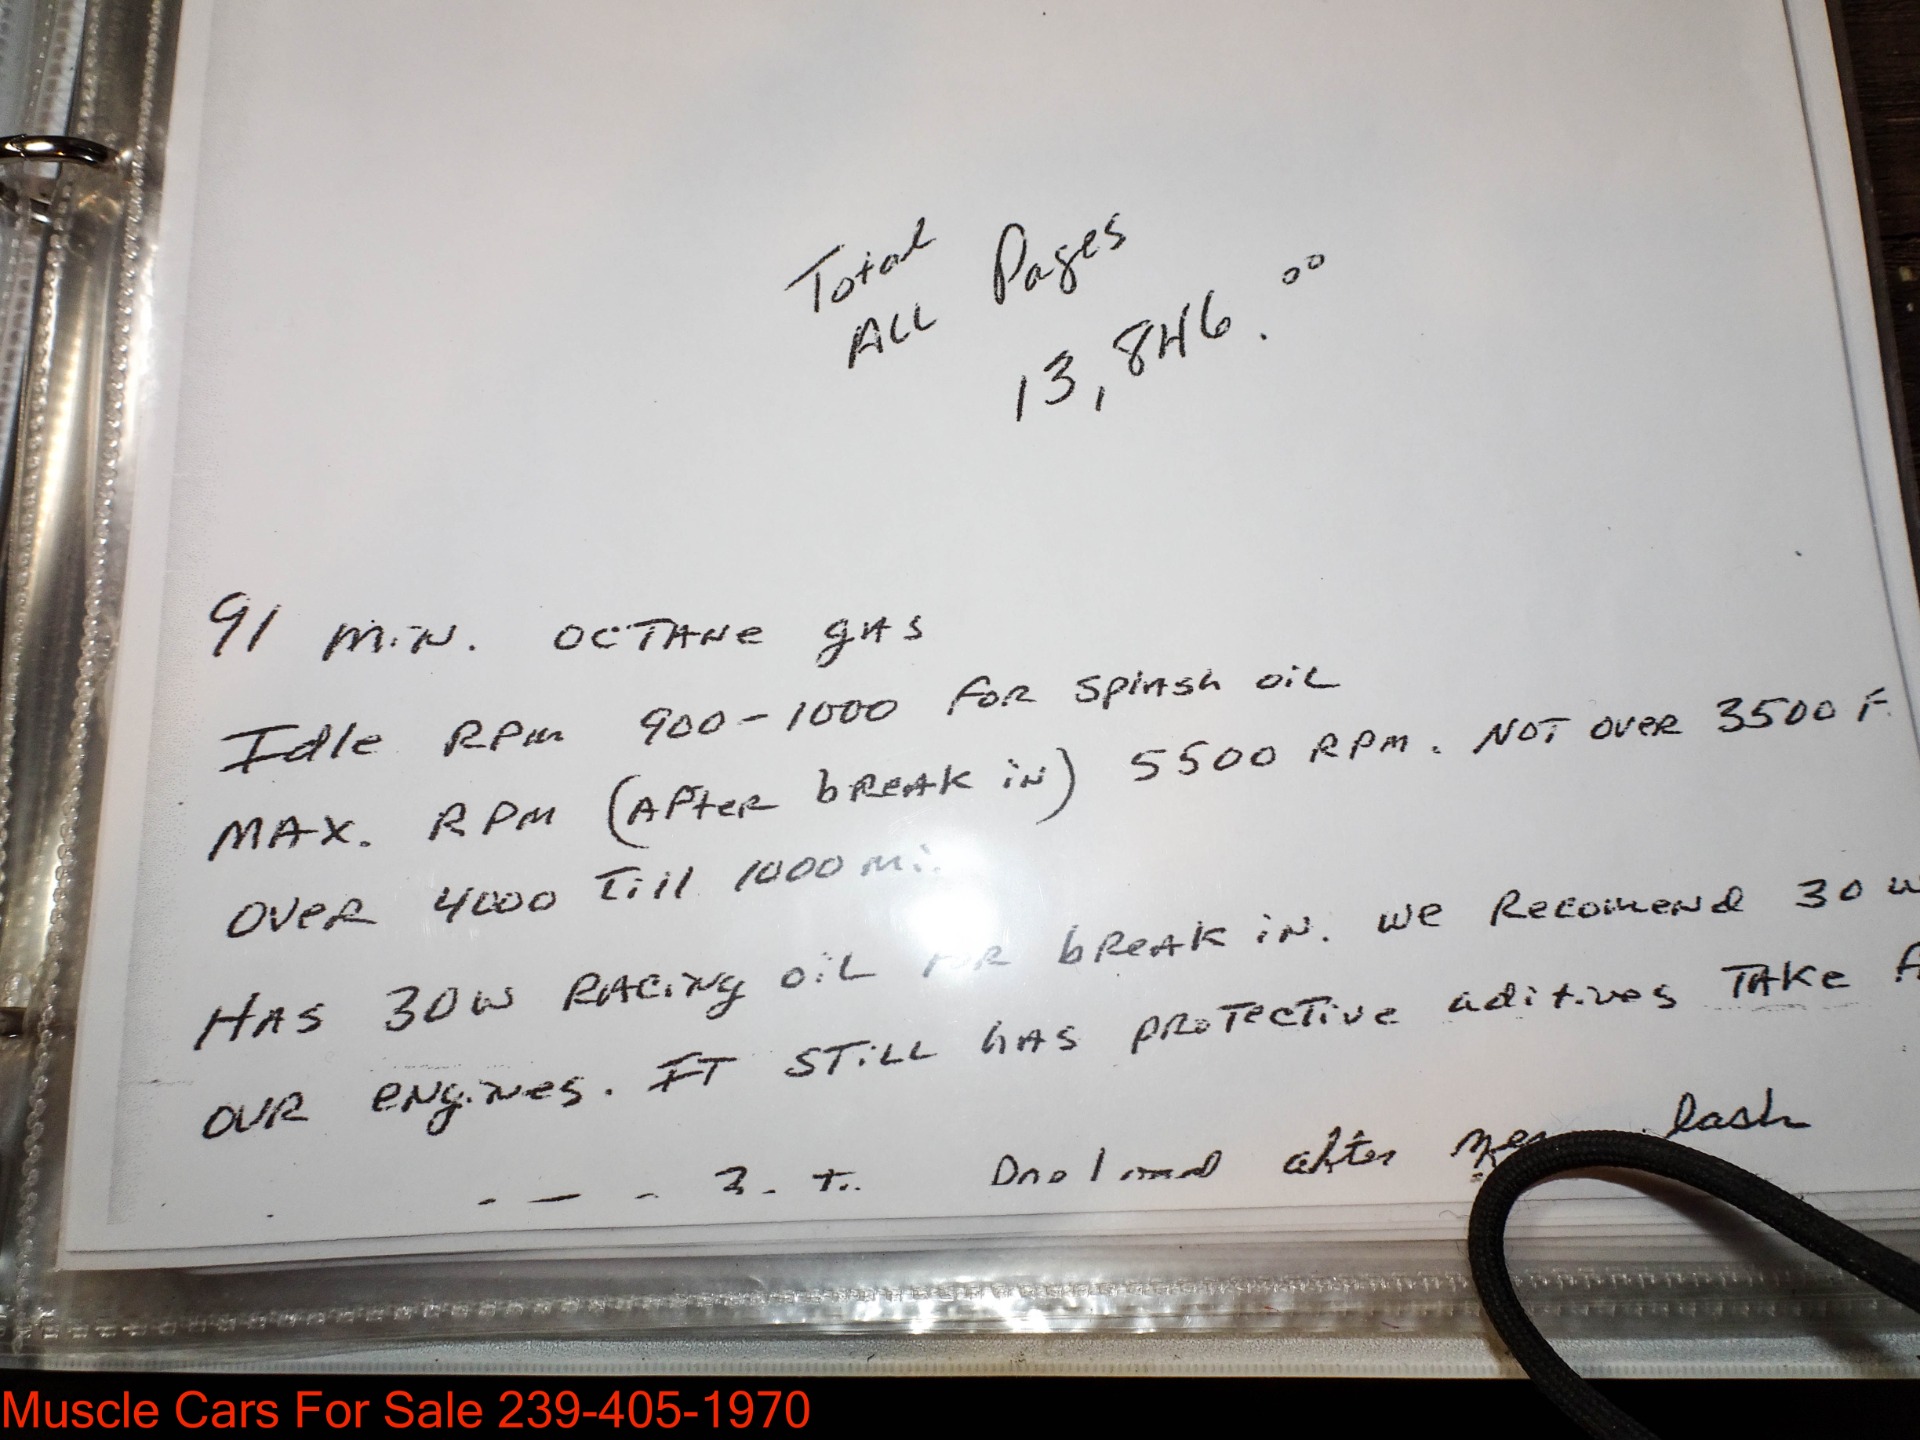 Total
ALL Pages
13,846.00
91 MiN. OCTANe gAS
Idle RPM 900-1000 FOR SPLASH OiL
MAX. RPM (AFter bREAK iN) 5500 RPM. NOT OVER 3500 F
OVER 4000 Till 1000 Mi.
HAS 30W RACiNg OiL FOR bREAK iN. We Recomend 30 W
OUR eNgiNes. IT STiLL hAS PROTecTive aditives TAKe
after lash
Muscle Cars For Sale 239-405-1970